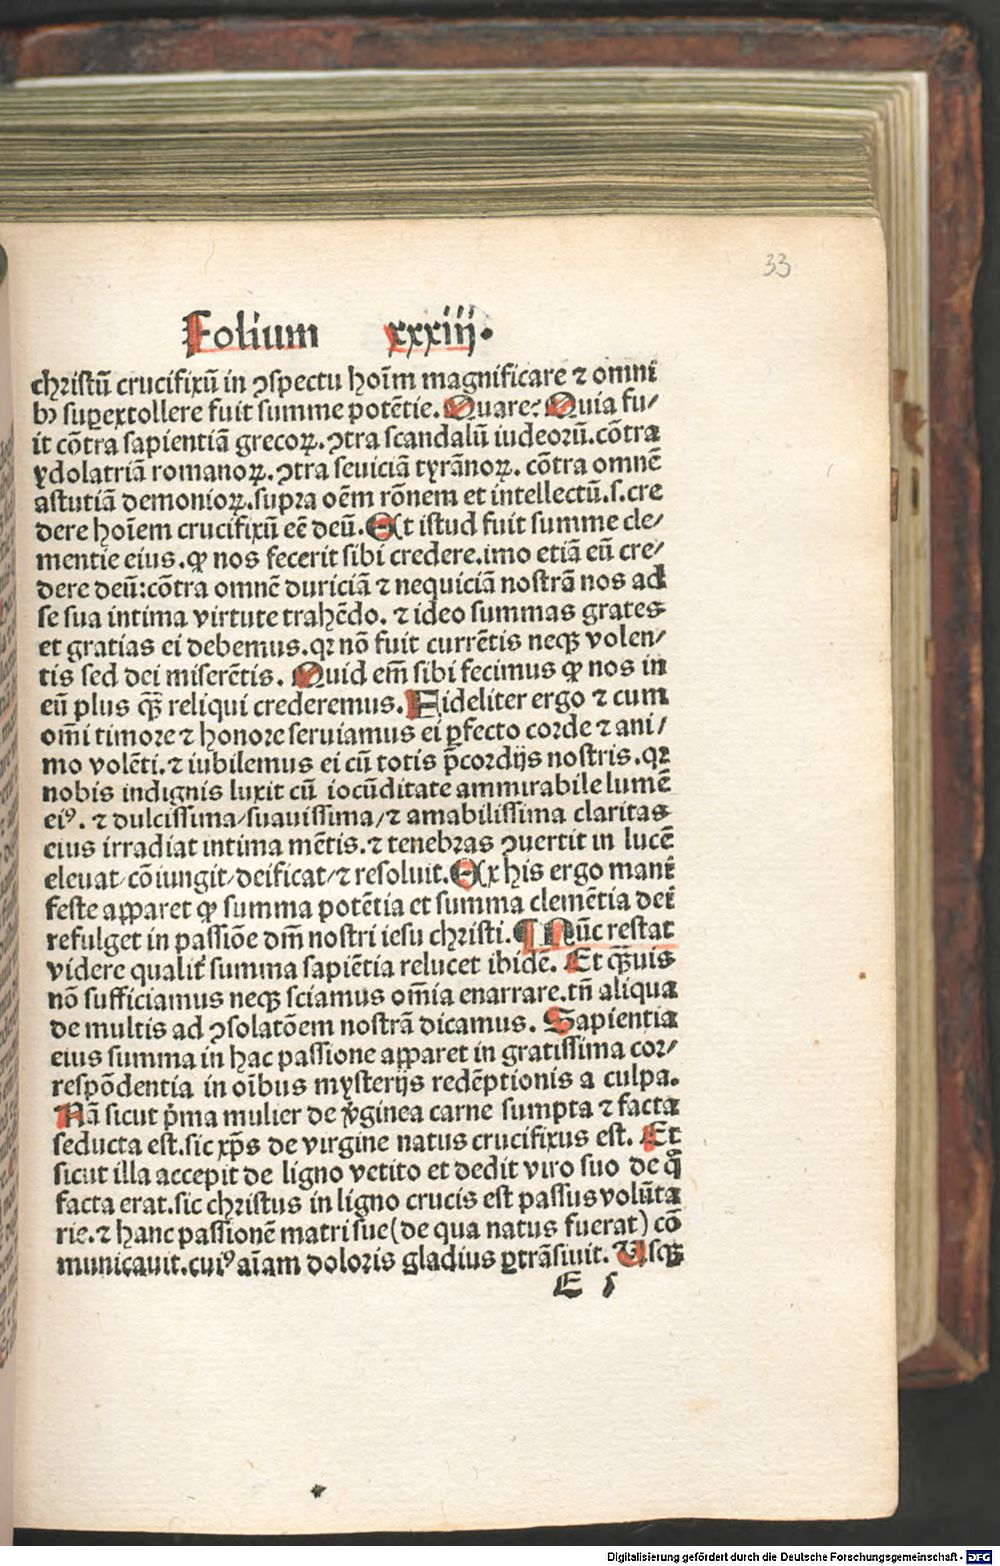 33
Folium xxxiij.
christū crucifixū in ꝯspectu hoīm magnificare ⁊ omni
bꝰ suꝑextollere fuit summe potētie. Quare? Quia fu/
it cōtra sapientiā grecoꝝ. ꝯtra scandalū iudeorū. cōtra
ydolatriā romanoꝝ. ꝯtra seviciā tyrānoꝝ. cōtra omnē
astutiā demonioꝝ. supra oēm rōnem et intellectū. s. cre
dere hoīem crucifixū eē deū. Et istud fuit summe cle/
mentie eius. ꝙ nos fecerit sibi credere. imo etiā eū cre/
dere deū: cōtra omnē duriciā ⁊ nequiciā nostrā nos ad
se sua intima virtute trahēdo. ⁊ ideo summas grates
et gratias ei debemus. qꝛ nō fuit currētis neqꝫ volen/
tis sed dei miserētis. Quid em̄ sibi fecimus ꝙ nos in
eū plus qꝫ̄ reliqui crederemus. Fideliter ergo ⁊ cum
om̄i timore ⁊ honore seruiamus ei ꝑfecto corde ⁊ ani/
mo volēti. ⁊ iubilemus ei cū totis p̄cordijs nostris. qꝛ
nobis indignis luxit cū iocūditate ammirabile lumē
eiꝰ. ⁊ dulcissima/suauissima/⁊ amabilissima claritas
eius irradiat intima mētis. ⁊ tenebras ꝯuertit in lucē
eleuat/cōiungit/deificat/⁊ resoluit. Ex his ergo mani
feste apparet ꝙ summa potētia et summa clemētia dei
refulget in passiōe dm̄ nostri iesu christi. ¶ Nūc restat
videre qualit̉ summa sapiētia relucet ibidē. Et qꝫ̄uis
nō sufficiamus neqꝫ sciamus om̄ia enarrare. tn̄ aliqua
de multis ad ꝯsolatōem nostrā dicamus. Sapientia
eius summa in hac passione apparet in gratissima cor/
respōdentia in oībus mysterijs redēptionis a culpa.
Nā sicut p̄ma mulier de v̄ginea carne sumpta ⁊ facta
seducta est. sic xp̄s de virgine natus crucifixus est. Et
sicut illa accepit de ligno vetito et dedit viro suo de q̄
facta erat. sic christus in ligno crucis est passus volūta
rie. ⁊ hanc passionē matri sue (de qua natus fuerat) cō
municauit. cuiꝰ aīam doloris gladius ꝑtrāsiuit. Usqꝫ
E s
Digitalisierung gefördert durch die Deutsche Forschungsgemeinschaft - DFG